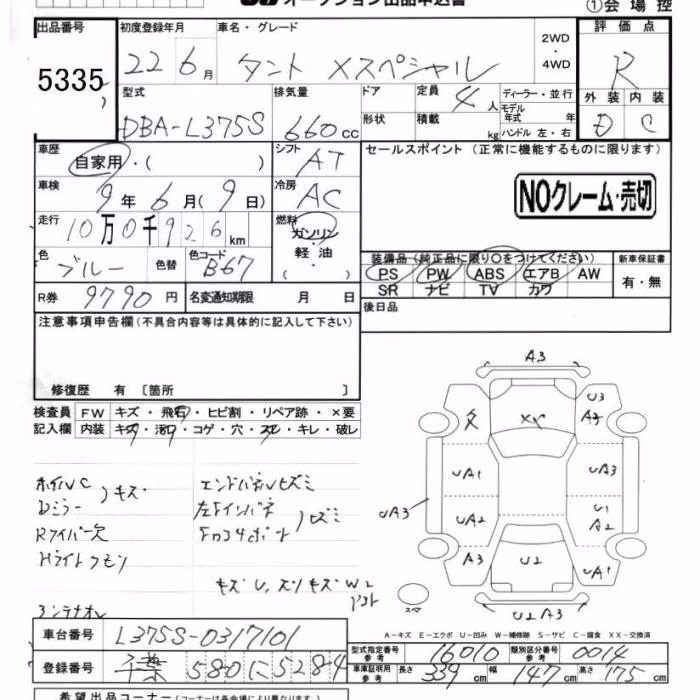 オークション出品申込書
①会場控
出品番号 初度登録年月 車名・グレード 2WD・4WD 評価点
5335 22 6月 タント Xスペシャル R
型式 排気量 ドア 定員 4人 ディーラー・並行 外装 内装
DBA-L375S 660cc 形状 積載 kg モデル年式 年 ハンドル 左・右 D C
車歴 自家用・( ) シフト AT セールスポイント (正常に機能するものに限ります)
車検 9年6月(9日) 冷房 AC NOクレーム・売切
走行 10万0千926km 燃料 ガソリン・軽油・( )
色 ブルー 色替 色コード B67
装備品(純正品に限り○をつけてください) 新車保証書
PS PW ABS エアB AW 有・無
SR ナビ TV カワ
R券 9790円 名変通知期限 月 日 後日品
注意事項申告欄(不具合内容等は具体的に記入して下さい)
修復歴 有 〔箇所 〕
検査員 FW キズ・飛石・ヒビ割・リペア跡・×要
記入欄 内装 キズ・汚れ・コゲ・穴・スレ・キレ・破レ
ホイルC キズ エンドパネルヒズミ
Dミラー 左Fインパネ
Rワイパー欠
Hライトクモリ
A3
U3
XX
UA1 UA3
UA3 UA2 U1 A2
A3 U2 UA1
スペア U2A3
A-キズ E-エクボ U-凹み W-補修跡 S-サビ C-腐食 XX-交換済
車台番号 L375S-0317101
型式指定番号 参考 16010 類別区分番号 参考 0014
登録番号 千葉 580 に 5284
車庫証明用 参考 長さ 339cm 幅 147cm 高さ 175cm
希望出品コーナー(コーナーは各会場により異なります。)